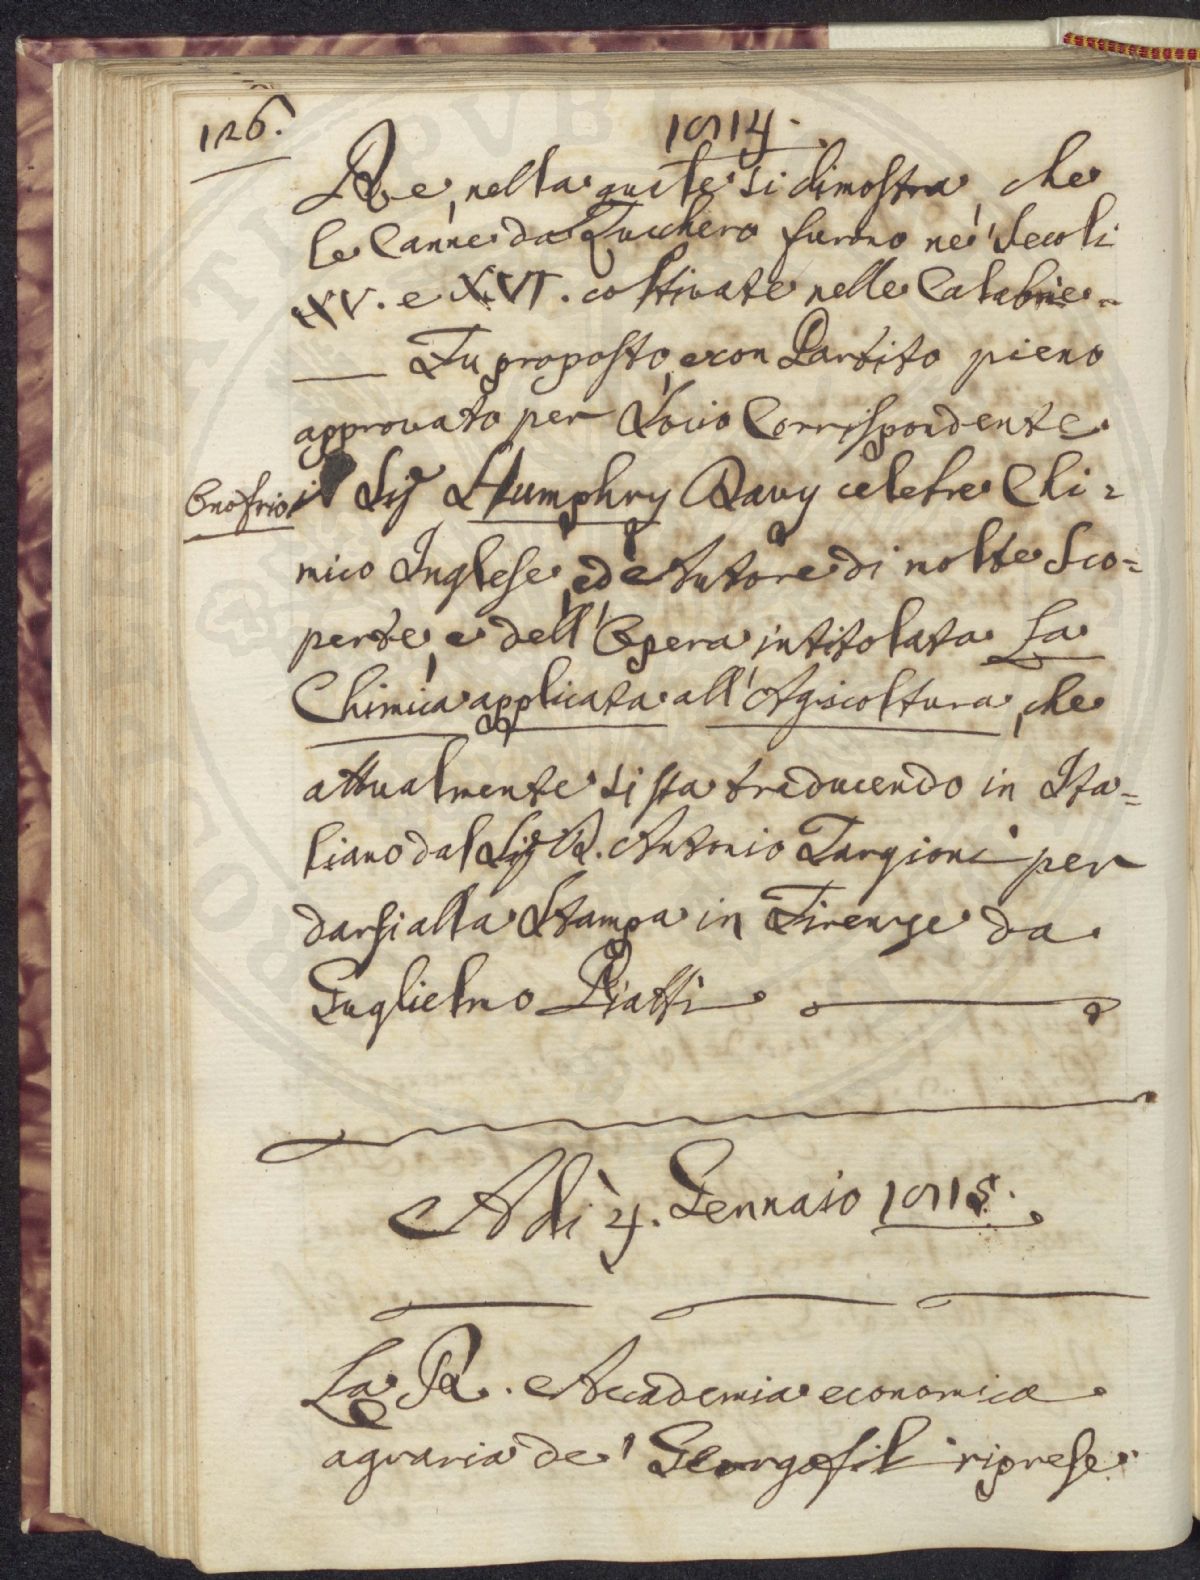 126.
1814.
Re, nella quale si dimostra, che
le Canne da Zucchero furono ne' Secoli
XV. e XVI. coltivate nelle Calabrie.
Fu proposto, e con Partito pieno
approvato per Socio Corrispondente
Onofrio il Sig Humphry Davy celebre Chi=
mico Inglese, ed è Autore di molte Sco=
perte, e dell' Opera intitolata La
Chimica applicata all' Agricoltura, che
attualmente si sta traducendo in Ita=
liano dal Sig D. Antonio Targioni per
darsi alla Stampa in Firenze da
Guglielmo Piatti
Adì 4. Gennaio 1815.
La R. Accademia economica
agraria de' Georgofili riprese